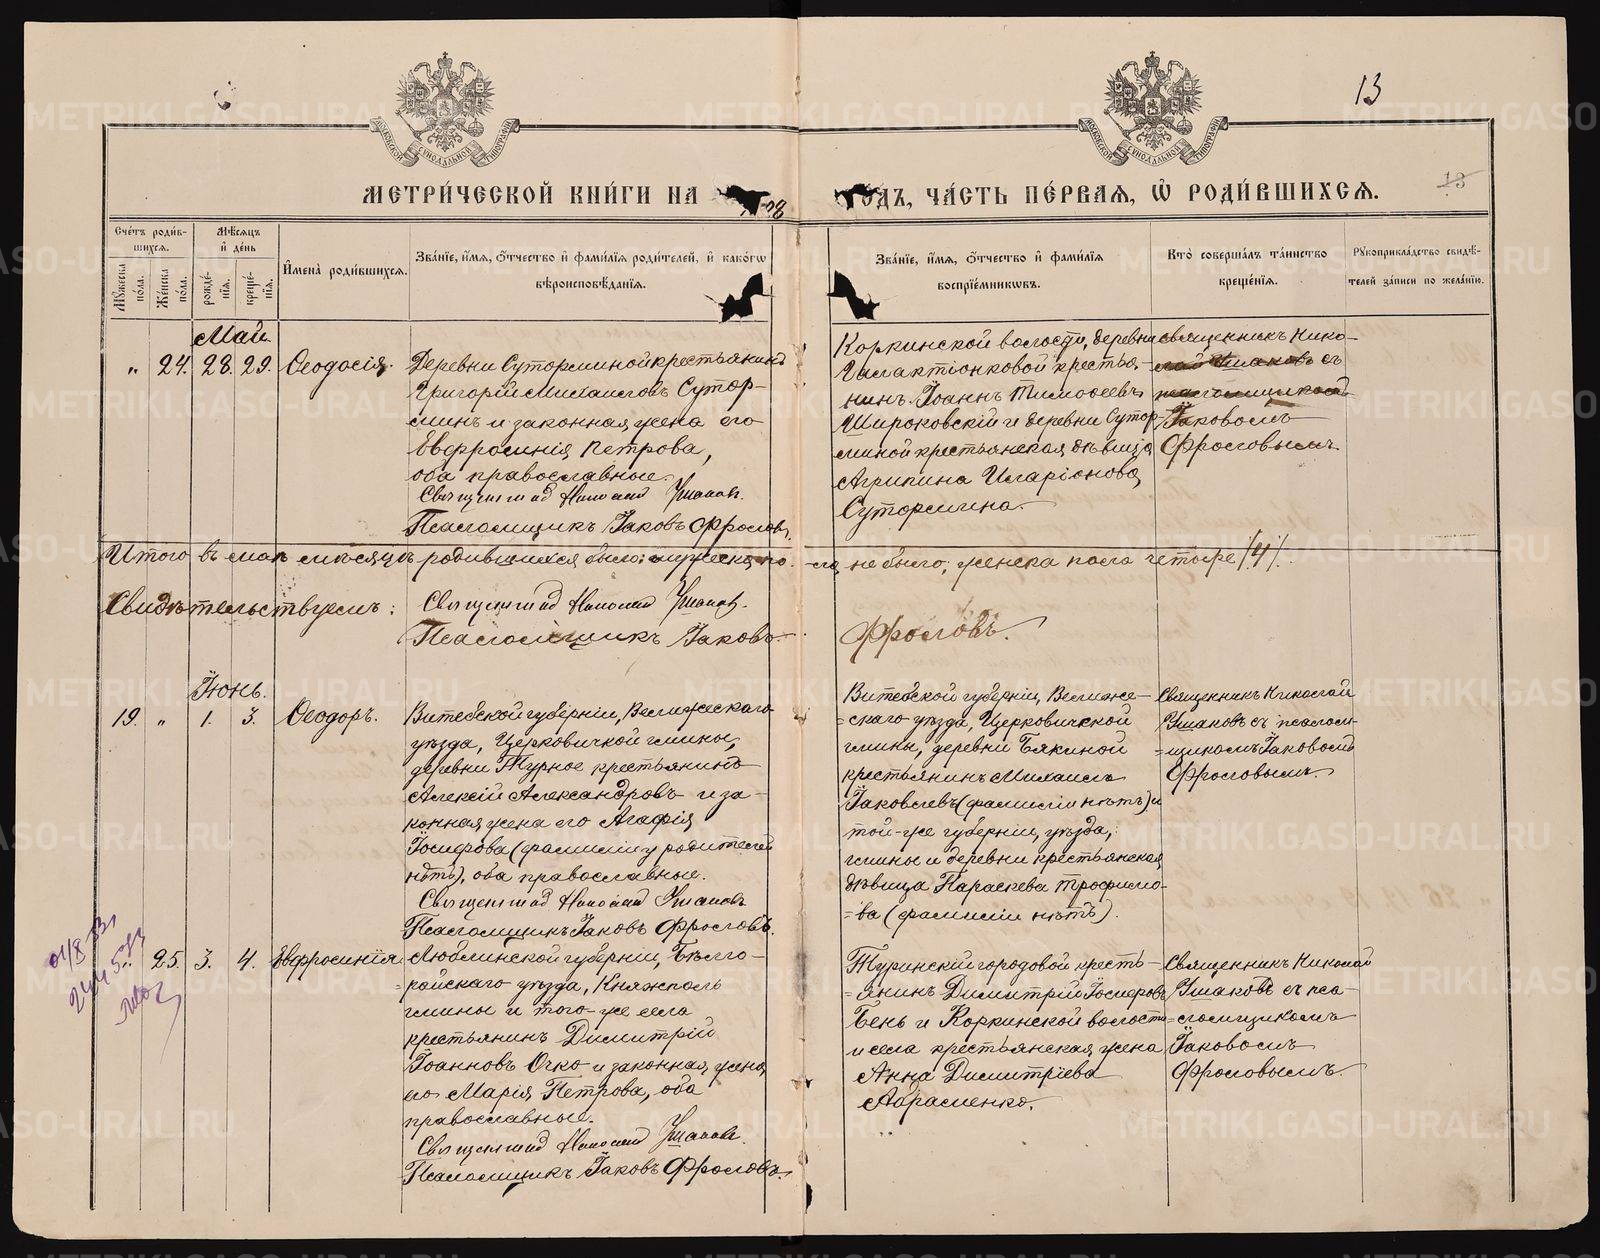 13
МЕТРИ́ЧЕСКОЙ КНИ́ГИ НА 1908
ГОДЪ, ЧА́СТЬ ПЕ́РВАЯ, Ѿ РОДИ́ВШИХСѦ.
13
МОСКОВСКОЙ СѴНОДАЛЬНОЙ ТИПОГРАФІИ
МОСКОВСКОЙ СѴНОДАЛЬНОЙ ТИПОГРАФІИ
Сче́тъ роди́в-
шихсѧ.
Мѣ́сѧцъ
и҆ де́нь
Мꙋ́жеска
по́ла.
Же́нска
по́ла.
рожде́-
нїѧ.
креще́-
нїѧ.
И҆мена̀ роди́вшихсѧ.
Зва́нїе, и҆́мѧ, ѻ҆́тчество и҆ фами́лїѧ роди́телей, и҆ како́гѡ
вѣроисповѣ́данїѧ.
Зва́нїе, и҆́мѧ, ѻ҆́тчество и҆ фами́лїѧ
воспрїе́мникѡвъ.
Кто̀ соверша́лъ та́инство
креще́нїѧ.
Рꙋкоприкла́дство свидѣ́-
телей за́писи по жела́нїю.
Май.
" 24. 28. 29. Ѳеодосія.
Деревни Суторминой крестьянинъ
Григорій Михаиловъ Сутор-
минъ и законная жена его
Евфросинія Петрова,
оба православные.
Священникъ Николай Ушаковъ.
Псаломщикъ Іаковъ Фроловъ.
Коркинской волости, деревни
нинъ Іоаннъ Тимоѳеевъ
Широковскій и деревни Сутор-
миной крестьянская дѣвица
Агрипина Иларіонова
Сутормина.
священникъ Нико-
лай Ушаковъ съ
псаломщикомъ
Іаковомъ
Фроловымъ.
Итого въ маѣ мѣсяцѣ родившихся было: мужеска по-
ла не было, женска пола четыре /4/.
Свидѣтельствуемъ:
Священникъ Николай Ушаковъ.
Псаломщикъ Іаковъ
Фроловъ.
Іюнь.
19. " 1. 3. Ѳеодоръ.
Витебской губерніи, Велижскаго
уѣзда, Церковичкой гмины,
деревни Турное крестьянинъ
Алексій Александровъ и за-
конная жена его Агафія
Іосифова (фамиліи у родителей
нѣтъ), оба православные.
Священникъ Николай Ушаковъ
Псаломщикъ Іаковъ Фроловъ.
Витебской губерніи, Велиже-
=скаго уѣзда, Церковичкой
гмины, деревни Бякиной
крестьянинъ Михаилъ
Іаковлевъ (фамиліи нѣтъ) и
той-же губерніи, уѣзда,
гмины и деревни крестьянская
дѣвица Параскева Трофимо-
=ва (фамиліи нѣтъ).
Священникъ Николай
Ушаковъ съ псалом-
=щикомъ Іаковомъ
Фроловымъ.
" 25. 3. 4. Евфросинія
Люблинской губерніи, Бѣлго-
райскаго уѣзда, Княжполь
гмины и того-же села
крестьянинъ Димитрій
Іоанновъ Очко и законная жена
его Марія Петрова, оба
православные.
Священникъ Николай Ушаковъ.
Псаломщикъ Іаковъ Фроловъ.
Туринскій городовой кресть-
=янинъ Димитрій Іосифовъ
Бень и Коркинской волости
и села крестьянская жена
Анна Димитріева
Абраменко.
Священникъ Николай
Ушаковъ съ пса-
=ломщикомъ
Іаковомъ
Фроловымъ.